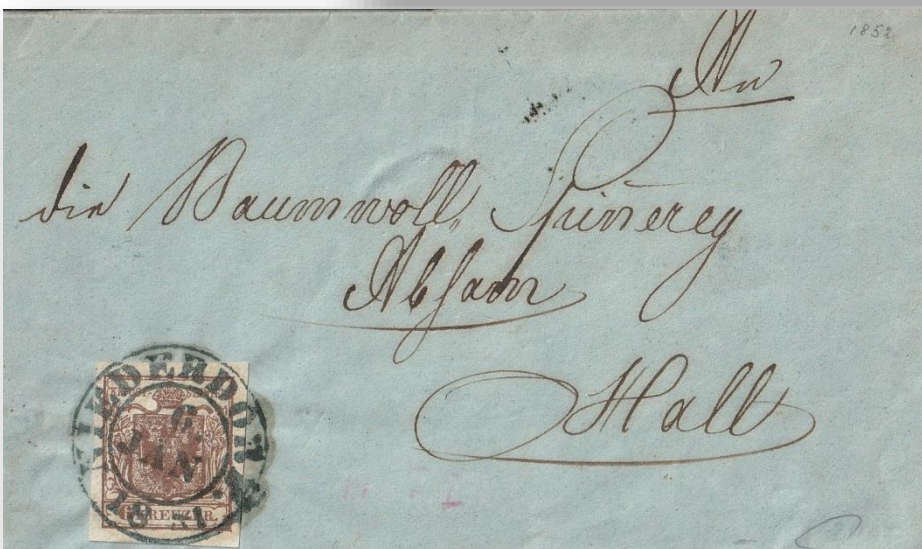 1852
An
die Baumwoll„ Spinerey
Absam
Hall
NIEDERDORF
6.
JAN
KREUZER.